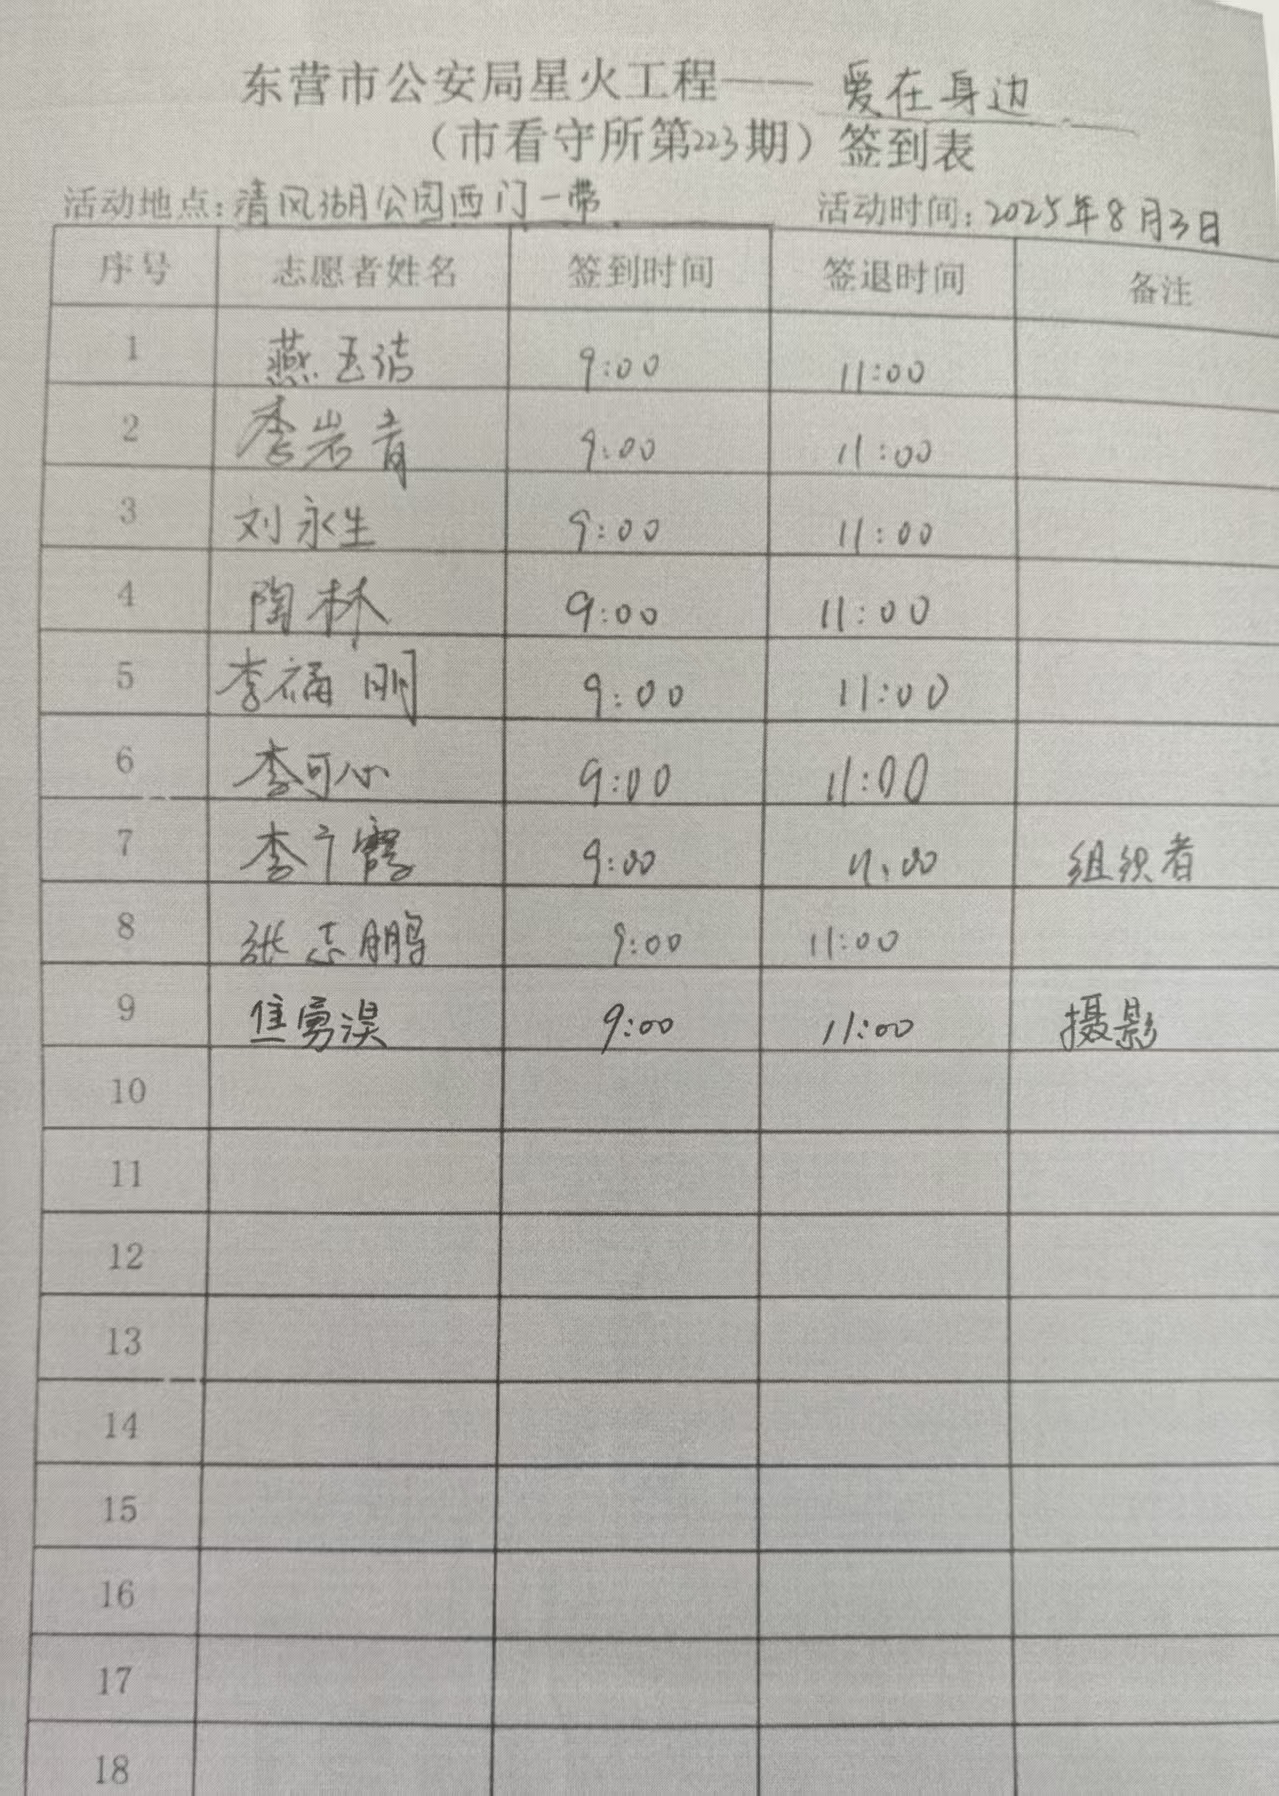 东营市公安局星火工程——爱在身边
（市看守所第223期）签到表
活动地点：清风湖公园西门一带 活动时间：2025年8月3日
序号 志愿者姓名 签到时间 签退时间 备注
1 燕玉洁 9:00 11:00
2 李岩青 9:00 11:00
3 刘永生 9:00 11:00
4 陶林 9:00 11:00
5 李福刚 9:00 11:00
6 李可心 9:00 11:00
7 李广霞 9:00 11:00 组织者
8 张志鹏 9:00 11:00
9 焦勇 9:00 11:00 摄影
10
11
12
13
14
15
16
17
18